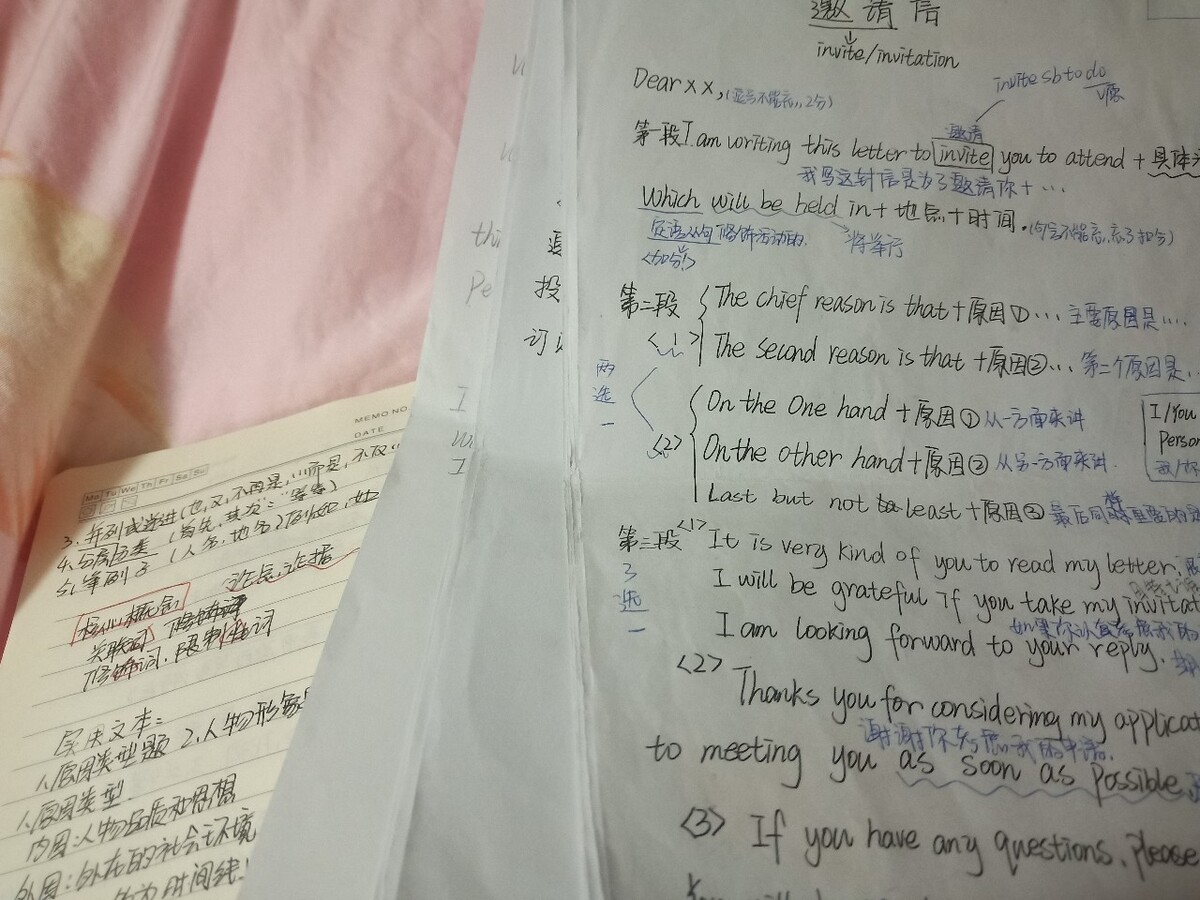 邀请信
invite/invitation
invite sb to do
v原
Dear x x,(逗号不能忘,2分)
邀请
第一段 I am writing this letter to invite you to attend + 具体
我写这封信是为了邀请你+...
Which will be held in + 地点 + 时间.(句号不能忘,忘了扣分)
定语从句修饰活动的. 将举行
<加分!>
第二段
<1> The chief reason is that + 原因①... 主要原因是...
The second reason is that + 原因②... 第二个原因是...
两选一
<2> On the One hand + 原因① 从一方面来讲
On the other hand + 原因② 从另一方面来讲.
Last but not to least + 原因③ 最后同样重要的是
I/You
Person
第三段 <1> It is very kind of you to read my letter.
3选一
I will be grateful if you take my invitat
I am looking forward to your reply.
<2> Thanks you for considering my applicat
谢谢你考虑我的申请.
to meeting you as soon as possible
<3> If you have any questions, please
You will
thi
Pe
投
订
I
I
MEMO NO
DATE
Mo Tu We Th Fr Sa Su
3. 并列或递进(也,又,不再是,而是,不仅
4. 分属五类 (首先,其次:"等等)
(人名,地名
论点,论据
核心概念
关联词 修饰语
修饰词,限制性词
实用文本:
1、原因类型题 2、人物形象
1、原因类型.
内因:人物品质和思想
外因:外在的社会环境
时间线